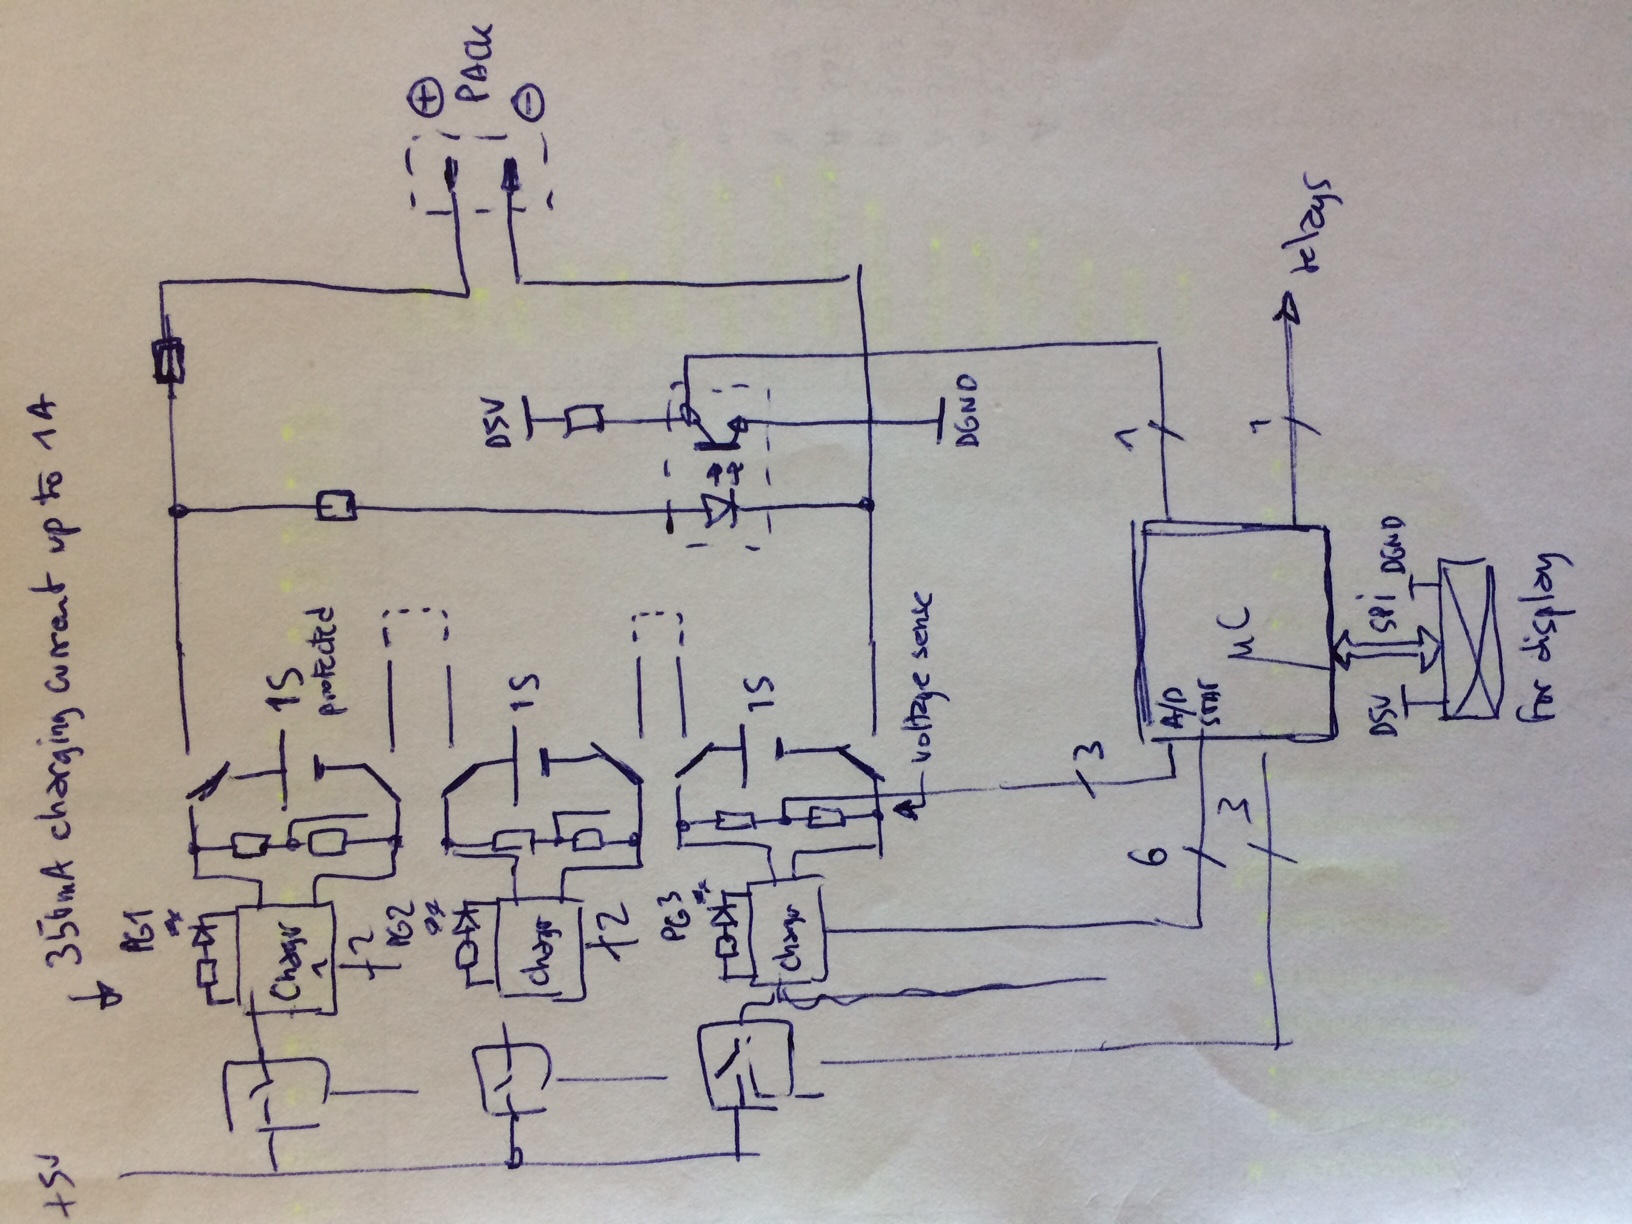 +5V
350mA charging current up to 1A
PG1
Charger
1
2
1S
protected
PG2
Charger
2
1S
PG3
Charger
1S
voltage sense
D5V
DGND
+
PACK
-
3
6
3
A/D
STAT
µC
1
1
relays
SPI
D5V
DGND
for display